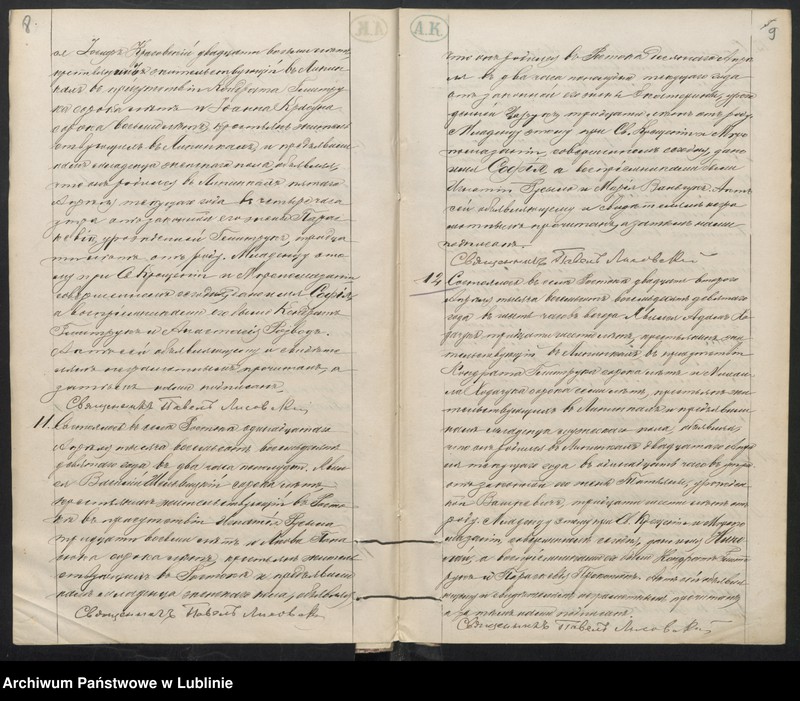 8.
ся Іосифъ Красовскій двадцати восьми лѣтъ,
жительствующій въ Липин-
кахъ въ присутствіи Кондрата Гештру-
ка сорока лѣтъ и
сорока восьми лѣтъ, крестьянъ житель-
ствующихъ въ Липинкахъ, и предъявилъ
намъ младенца женскаго пола, объявляя,
что онъ родился въ Липинкахъ
Апрѣля текущаго года въ четыре часа
утра отъ законной его жены Парас-
кевіи, урожденной Гештрукъ, тридца-
ти лѣтъ отъ роду. Младенцу это-
му при Св. Крещеніи и Мѵропомазаніи
совершенномъ сегодня дано имя Софія
а воспріемниками его были Кондратъ
Гештрукъ и Анастасія
Актъ сей объявляющему и свидѣте-
лямъ неграмотнымъ прочитанъ, а
затѣмъ нами подписанъ.
Священникъ Павелъ Лисовскій
11. Состоялся въ селѣ Ростока одинадцатаго
Апрѣля тысяча восемьсотъ восемьдесятъ
девятаго года въ два часа пополудни. Явил-
ся Василій сорока лѣтъ
крестьянинъ жительствующій въ Росто-
кѣ въ присутствіи Игнатія
тридцати восьми лѣтъ и
сорока лѣтъ, крестьянъ житель-
ствующихъ въ Ростокѣ и предъявилъ
намъ младенца женскаго пола, объявляя,
Священникъ Павелъ Лисовскій
АК
9
что онъ родился въ Ростокѣ Апрѣ-
ля въ два часа пополудни текущаго года
отъ законной его жены Екатерины, урож-
денной тридцати лѣтъ отъ роду.
Младенцу этому при Св. Крещеніи и Мѵро-
помазаніи совершенномъ сегодня, дано
имя Софія а воспріемниками были
Игнатій и Марія Актъ
сей объявляющему и свидѣтелямъ негра-
мотнымъ прочитанъ, а затѣмъ нами
подписанъ.
Священникъ Павелъ Лисовскій
12 Состоялся въ селѣ Ростока двадцать втораго
Апрѣля тысяча восемьсотъ восемьдесятъ девятаго
года въ часовъ вечера. Явился Адамъ
тридцати шести лѣтъ, крестьянинъ жи-
тельствующій въ Липинкахъ въ присутствіи
Кондрата Гештрука сорока лѣтъ и
сорока лѣтъ, крестьянъ жи-
тельствующихъ въ Липинкахъ и предъявилъ
намъ младенца мужескаго пола, объявляя,
что онъ родился въ Липинкахъ двадцатаго Апрѣ-
ля текущаго года въ часовъ утра
отъ законной его жены Татьяны, урожден-
ной тридцати шести лѣтъ отъ
роду. Младенцу этому при Св. Крещеніи и Мѵропо-
мазаніи, совершенномъ сегодня, дано имя Нико-
лай, а воспріемниками его были Кондратъ Гешт-
рукъ и Параскева Актъ сей объявля-
ющему и свидѣтелямъ неграмотнымъ прочитанъ,
а затѣмъ нами подписанъ.
Священникъ Павелъ Лисовскій
Archiwum Państwowe w Lublinie